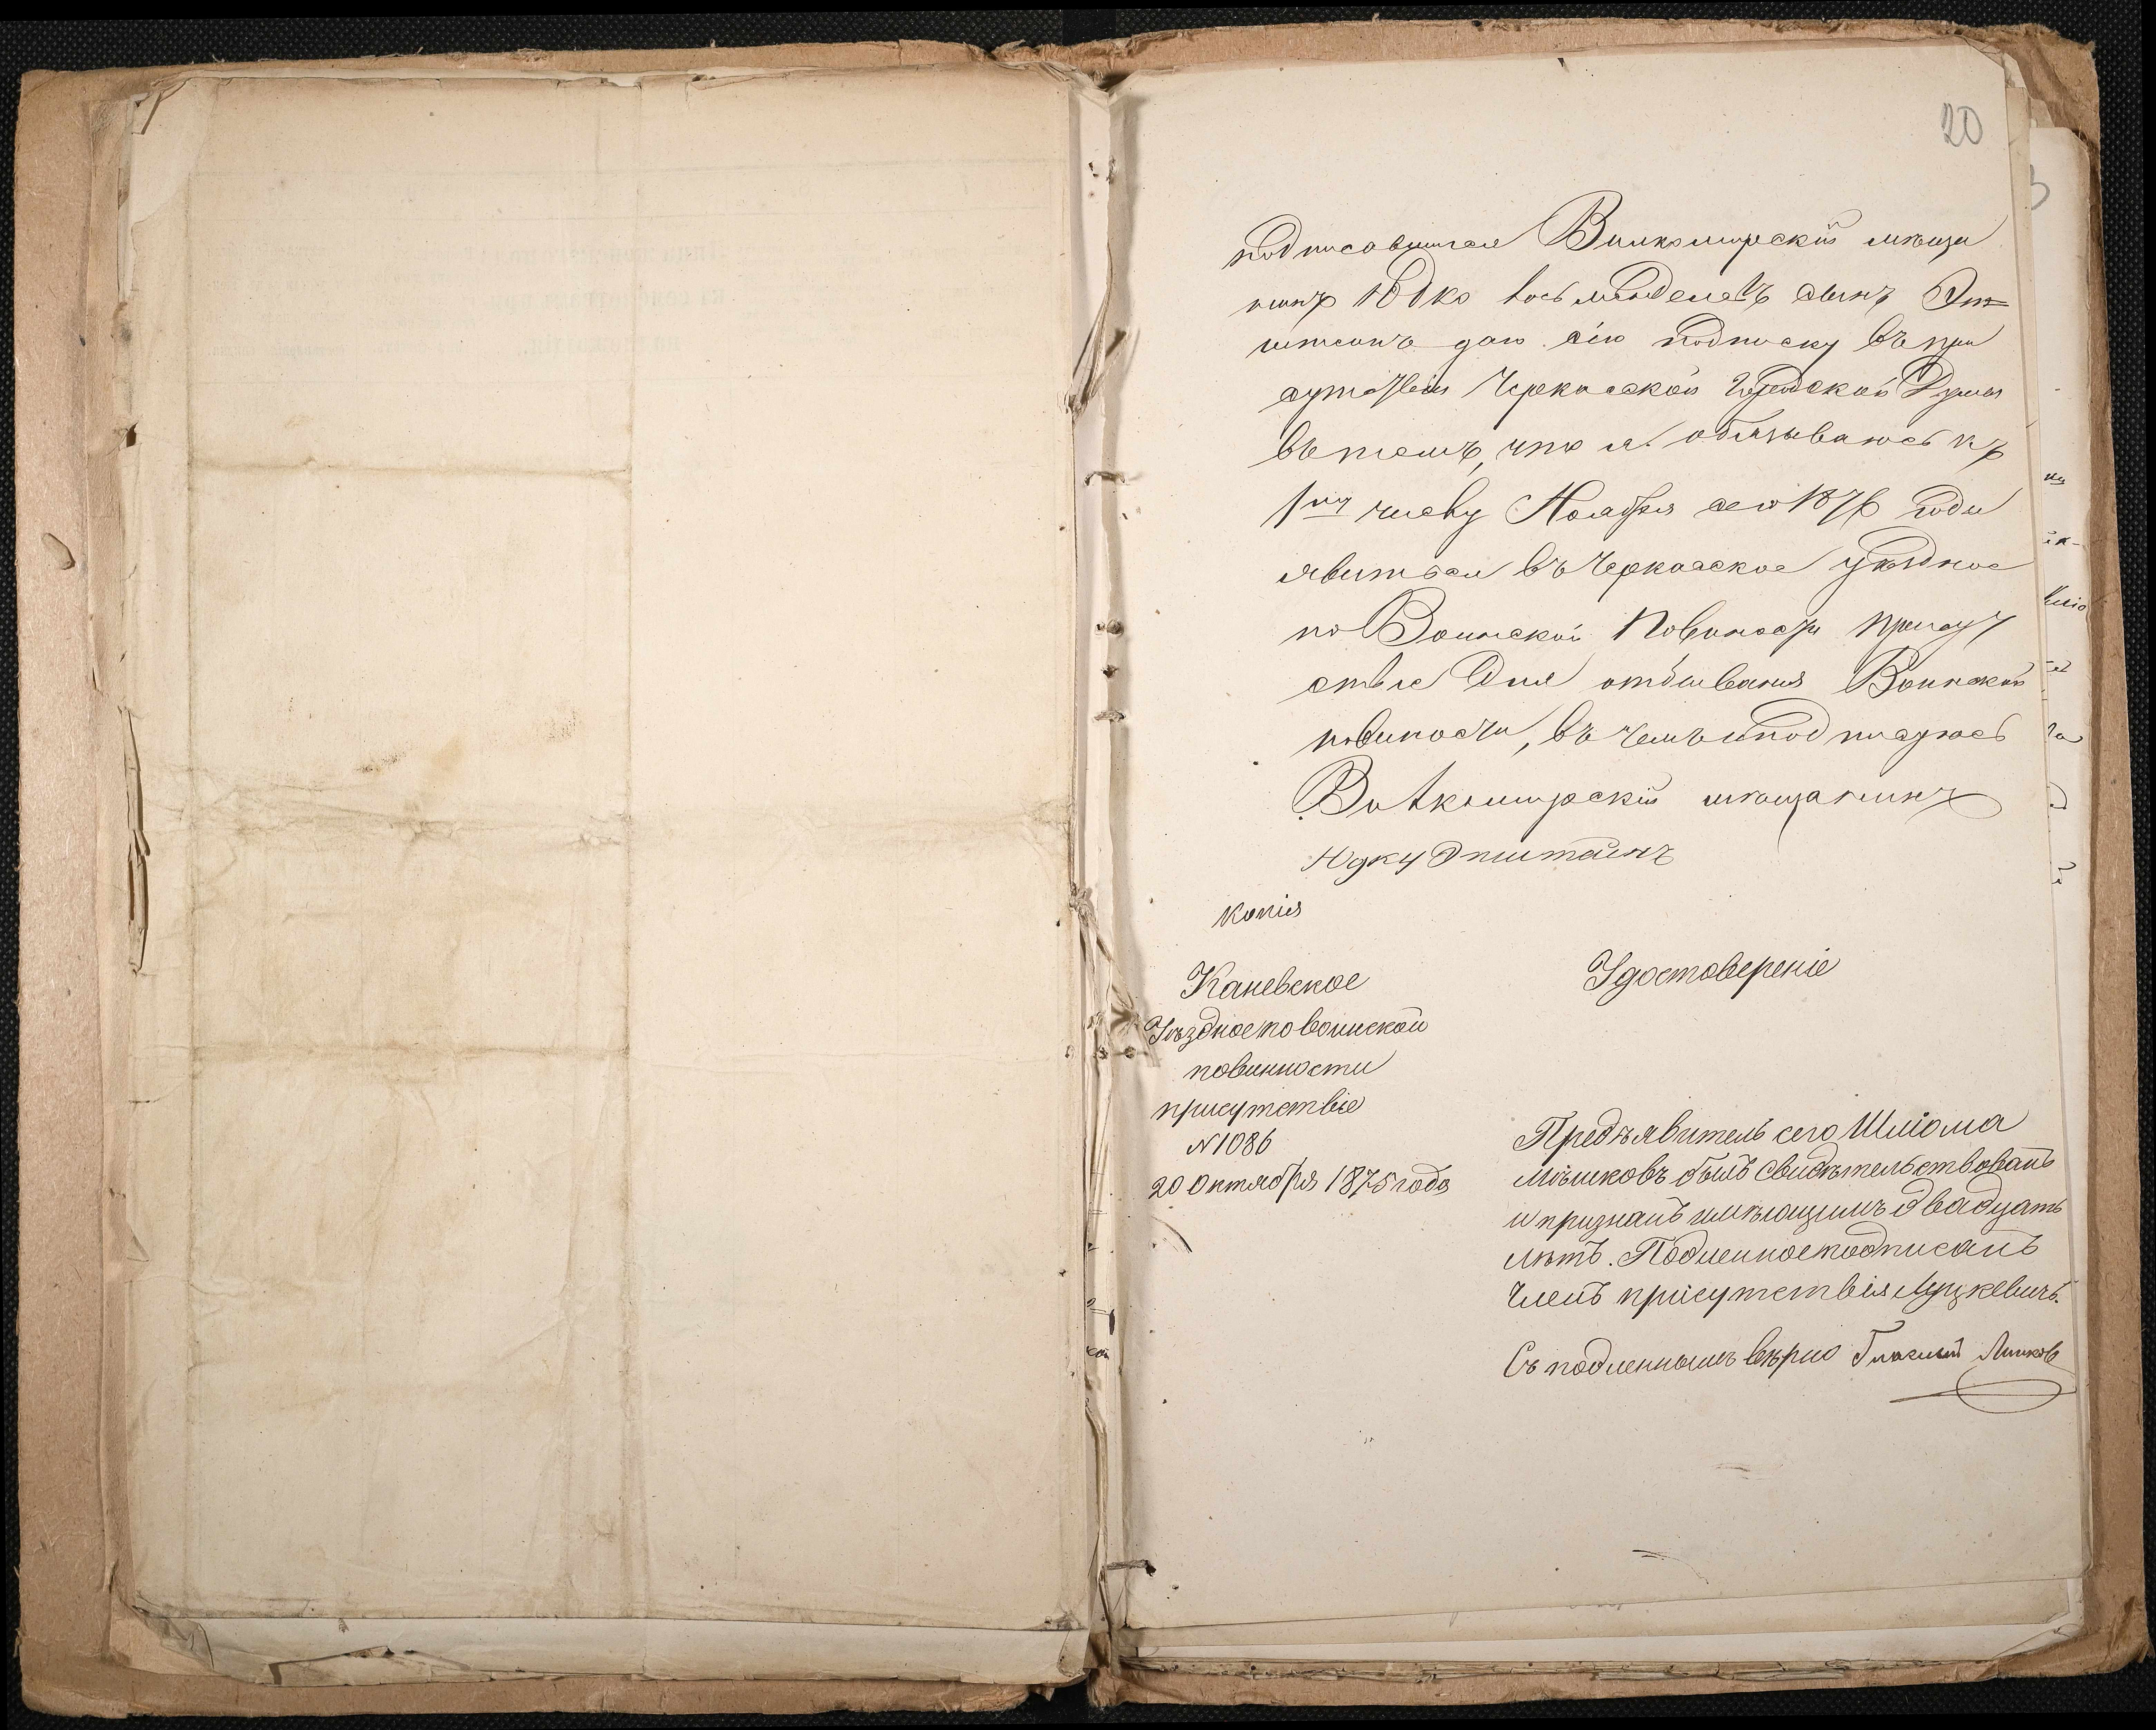 20
подписавшійся Вилкомирскій мѣща
нинъ Юдко сынъ Эп
штейнъ даю сію подписку въ при
сутствіи Черкасской Городской Думы
въ томъ, что я обязываюсь къ
1му числу Ноября сего 1876 года
явиться въ Черкасское уѣздное
по Воинской Повиности присут
ствіе для отбыванія Воинской
повиности, въ чемъ и подписуюсь
Вилкомирскій мѣщанинъ
Юдку Эпштейнъ
Копія
Каневское
Уѣздное по воинской
повинности
присутствіе
N 1086
20 Октября 1875 года
Удостовереніе
Предъявитель сего Шліома
Мѣшковъ былъ свидѣтельствованъ
и признанъ имѣющимъ двадцать
лѣтъ. Подленное подписалъ
Членъ присутствія Луцкевичъ.
Съ подленнымъ вѣрно Гласный